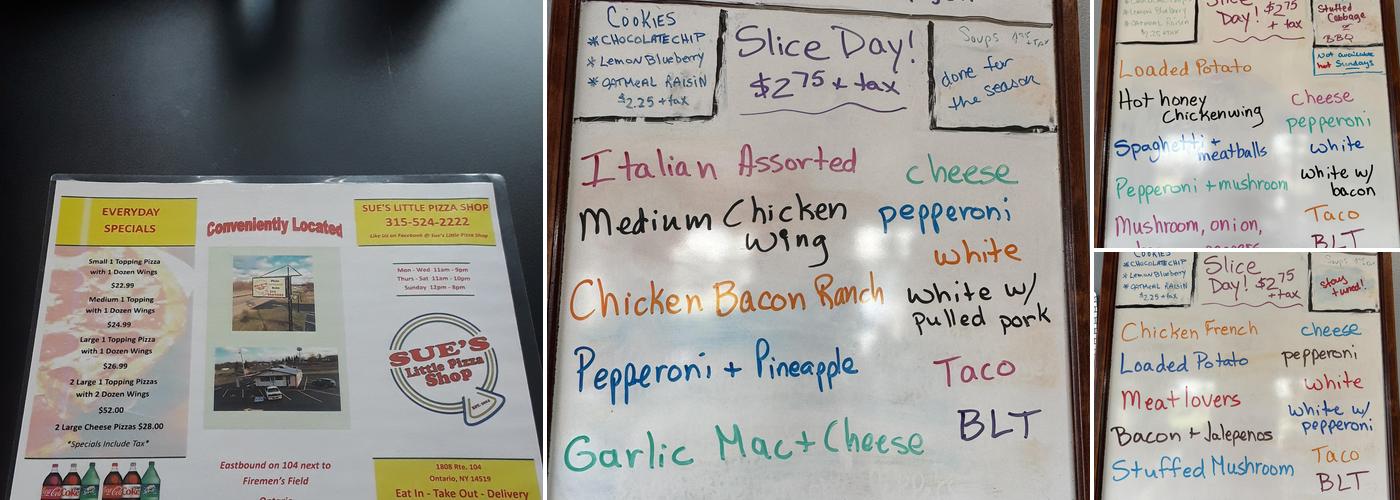 EVERYDAY
SPECIALS
Small 1 Topping Pizza
with 1 Dozen Wings
$22.99
Medium 1 Topping
with 1 Dozen Wings
$24.99
Large 1 Topping Pizza
with 1 Dozen Wings
$26.99
2 Large 1 Topping Pizzas
with 2 Dozen Wings
$52.00
2 Large Cheese Pizzas $28.00
*Specials Include Tax*
Conveniently Located
Eastbound on 104 next to
Firemen's Field
SUE'S LITTLE PIZZA SHOP
315-524-2222
Like us on Facebook @ Sue's Little Pizza Shop
Mon - Wed 11am - 9pm
Thurs - Sat 11am - 10pm
Sunday 12pm - 8pm
SUE'S
Little Pizza
Shop
1808 Rte. 104
Ontario, NY 14519
Eat In - Take Out - Delivery
Cookies
* CHOCOLATE CHIP
* Lemon Blueberry
* OATMEAL RAISIN
$2.25 + tax
Slice Day!
$2 75 + tax
Soups
done for
the season
Italian Assorted
Medium Chicken
Wing
Chicken Bacon Ranch
Pepperoni + Pineapple
Garlic Mac + Cheese
cheese
pepperoni
white
white w/
pulled pork
Taco
BLT
* Lemon Blueberry
* OATMEAL RAISIN
$2.25 + tax
Slice $2 75
Day! + tax
Stuffed
Cabbage
or
BBQ
Not available
hot Sundays
Loaded Potato
Hot honey
Chicken wing
Spaghetti +
meatballs
Pepperoni + mushroom
Mushroom, onion,
cheese
pepperoni
white
white w/
bacon
Taco
BLT
COOKIES
* CHOCOLATE CHIP
* Lemon Blueberry
* OATMEAL RAISIN
$2.25 + tax
Slice
Day! $2 75
+ tax
Soups
stay
tuned!
Chicken French
Loaded Potato
Meatlovers
Bacon + Jalepenos
Stuffed Mushroom
cheese
pepperoni
white
white w/
pepperoni
Taco
BLT